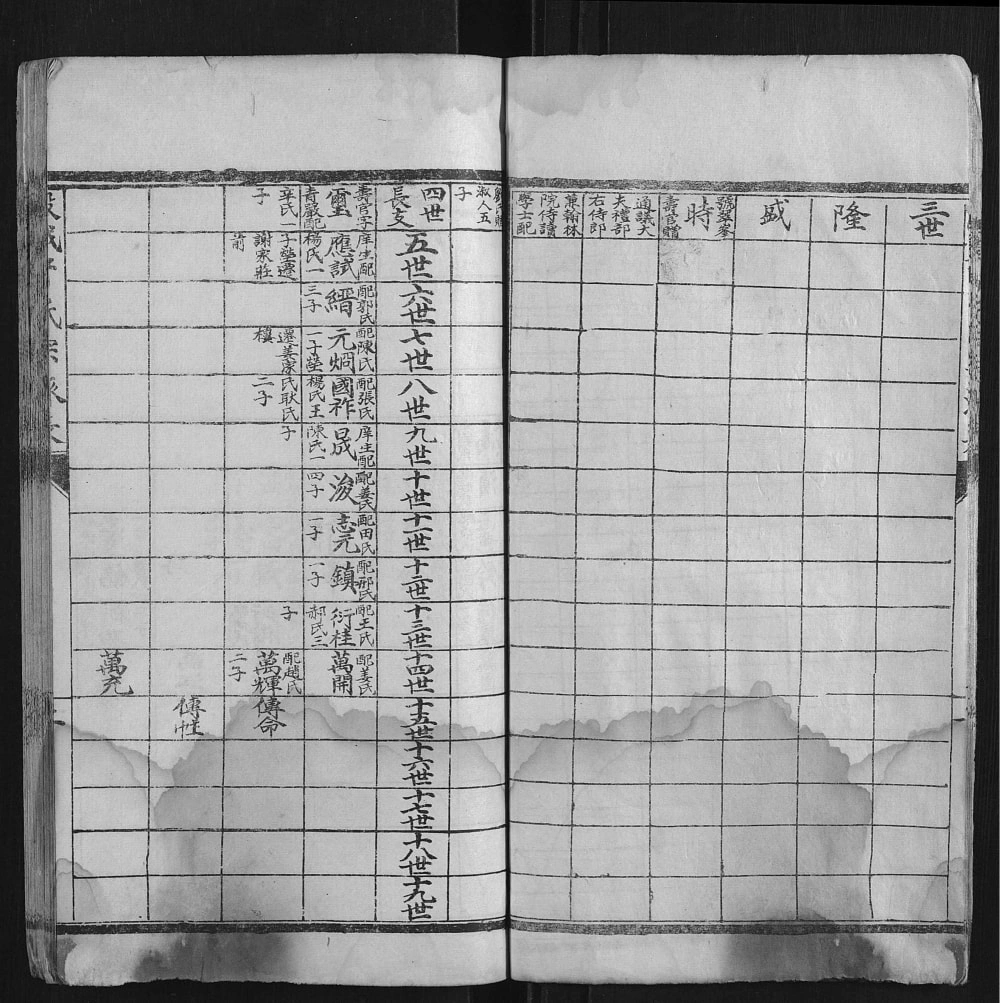 三世
隆
盛
號翠峯
時
壽官贈
通議大
夫禮部
右侍郎
兼翰林
院侍讀
學士配
淑人五
子
四世
長支
壽官字
璽
青巖配
辛氏一
子
五世
庠生配
應試
楊氏一
子塋遷
謝家莊
前
六世
配郭氏
縉
三子
七世
配陳氏
元烱
一子塋
遷姜家
樓
八世
配張氏
國祚
楊氏王
氏耿氏
二子
九世
庠生配
晟
陳氏一
子
十世
配姜氏
浚
四子
十一世
配田氏
志元
一子
十二世
配邢氏
鎮
一子
十三世
配王氏
衍桂
郝氏三
子
十四世
配姜氏
萬開
配趙氏
萬輝
二子
萬充
十五世
傳命
傳性
十六世
十七世
十八世
十九世